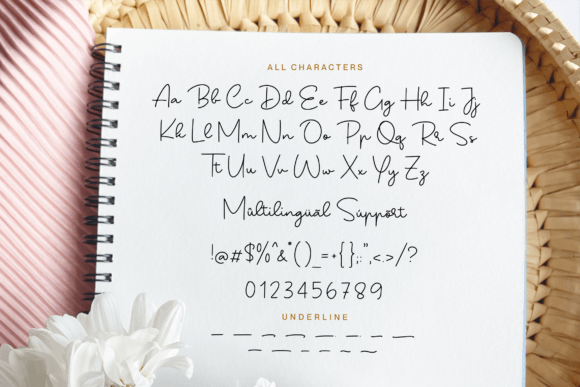 ALL CHARACTERS
Aa Bb Cc Dd Ee Ff Gg Hh Ii Jj
Kk Ll Mm Nn Oo Pp Qq Rr Ss
Tt Uu Vv Ww Xx Yy Zz
Múltilingüäl Súppørt
!@#$%^&*()_=+{};:",<.>/?
0123456789
UNDERLINE